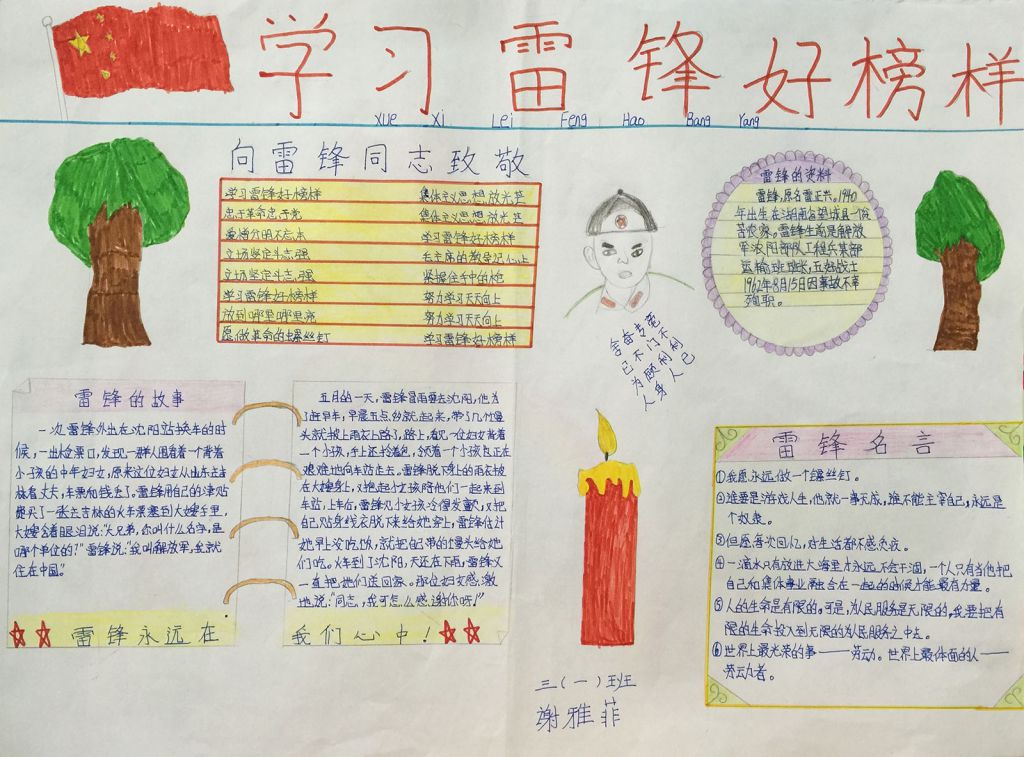 学习雷锋好榜样
xue xi Lei Feng Hao Bang Yang
向雷锋同志致敬
学习雷锋好榜样 集体主义思想放光芒
忠于革命忠于党 集体主义思想放光芒
爱憎分明不忘本 学习雷锋好榜样
立场坚定斗志强 毛主席的教导记心上
立场坚定斗志强 紧握住手中的枪
学习雷锋好榜样 努力学习天天向上
放到哪里哪里亮 努力学习天天向上
愿做革命的螺丝钉 学习雷锋好榜样
舍奋专毫
己不门不
为顾利利
人身人己
雷锋的资料
雷锋,原名雷正兴。1940
年出生在湖南省望城县一個
苦农家。雷锋生前是解放
军沈阳部队工程兵某部
运输班班长,五好战士
1962年8月15日因事故不幸
殉职。
雷锋的故事
一次雷锋外出在沈阳站换车的时
候,一出检票口,发现一群人围着看一个背着
小孩的中年妇女,原来这位妇女从山东去吉
林看丈夫,车票和钱丢了。雷锋用自己的津贴
费买了一张去吉林的火车票塞到大嫂手里,
大嫂含着眼泪说:“大兄弟,你叫什么名字,是
哪个单位的?”雷锋说:“我叫解放军,就
住在中国。”
雷锋永远在
五月的一天,雷锋冒雨要去沈阳,他为
了赶早车,早晨五点多就起来,带了几个馒
头就披上雨衣上路了,路上,看见一位妇女背着
一个小孩,手上还拎着包,领着一个小孩也正在
艰难地向车站走去。雷锋脱下身上的雨衣披
在大嫂身上,又抱起小女孩陪他们一起来到
车站,上车后,雷锋见小女孩冷得发颤,又把
自己贴身线衣脱下来给她穿上,雷锋估计
她早上没吃饭,就把自己带的馒头给她
们吃。火车到了沈阳,天还在下雨,雷锋又
一直把她们送回家。那位妇女感激
地说:“同志,我可怎么感谢你呀!”
我们心中!
三(一)班
谢雅菲
雷锋名言
①我愿永远做一个螺丝钉。
②谁要是游戏人生,他就一事无成,谁不能主宰自己,永远是
个奴隶。
③但愿每次回忆,对生活都不感负疚。
④一滴水只有放进大海里才永远不会干涸,一个人只有当他把
自己和集体事业融合在一起的时候才能最有力量。
⑤人的生命是有限的。可是,为人民服务是无限的,我要把有
限的生命投入到无限的为民服务之中去。
⑥世界上最光荣的事——劳动。世界上最体面的人——
劳动者。